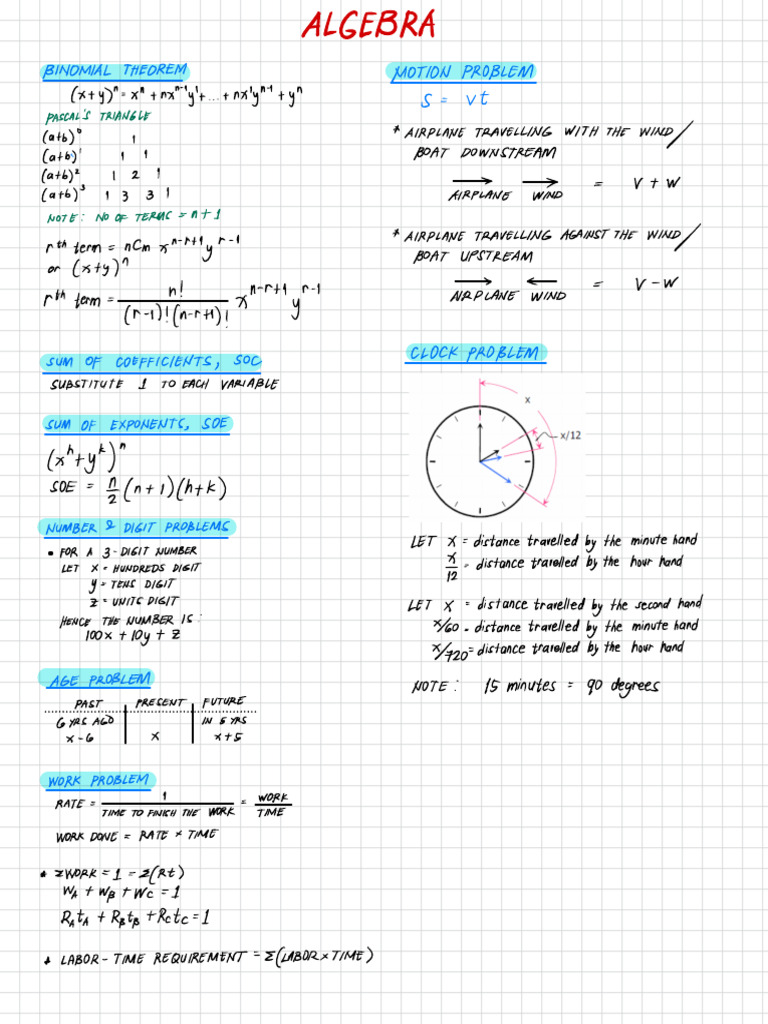 ALGEBRA
BINOMIAL THEOREM
(x+y)ⁿ = xⁿ + nxⁿ⁻¹y¹ + ... + nx¹yⁿ⁻¹ + yⁿ
PASCAL'S TRIANGLE
(a+b)⁰ 1
(a+b)¹ 1 1
(a+b)² 1 2 1
(a+b)³ 1 3 3 1
NOTE: NO OF TERMS = n+1
rᵗʰ term = nCm xⁿ⁻ʳ⁺¹ yʳ⁻¹
or (x+y)ⁿ
rᵗʰ term = n! / (r-1)! (n-r+1)! xⁿ⁻ʳ⁺¹ yʳ⁻¹
SUM OF COEFFICIENTS, SOC
SUBSTITUTE 1 TO EACH VARIABLE
SUM OF EXPONENTS, SOE
(xʰ + yᵏ)ⁿ
SOE = n/2 (n+1)(h+k)
NUMBER & DIGIT PROBLEMS
• FOR A 3-DIGIT NUMBER
LET x = HUNDREDS DIGIT
y = TENS DIGIT
z = UNITS DIGIT
HENCE THE NUMBER IS:
100x + 10y + z
AGE PROBLEM
PAST PRESENT FUTURE
6 YRS AGO IN 5 YRS
x-6 x x+5
WORK PROBLEM
RATE = 1 / TIME TO FINISH THE WORK = WORK / TIME
WORK DONE = RATE × TIME
* ΣWORK = 1 = Σ(Rt)
W_A + W_B + W_C = 1
R_A t_A + R_B t_B + R_C t_C = 1
* LABOR-TIME REQUIREMENT = Σ(LABOR × TIME)
MOTION PROBLEM
S = vt
* AIRPLANE TRAVELLING WITH THE WIND/
BOAT DOWNSTREAM
AIRPLANE WIND = V + W
* AIRPLANE TRAVELLING AGAINST THE WIND/
BOAT UPSTREAM
AIRPLANE WIND = V - W
CLOCK PROBLEM
x
x/12
LET x = distance travelled by the minute hand
x/12 = distance travelled by the hour hand
LET x = distance travelled by the second hand
x/60 = distance travelled by the minute hand
x/720 = distance travelled by the hour hand
NOTE: 15 minutes = 90 degrees